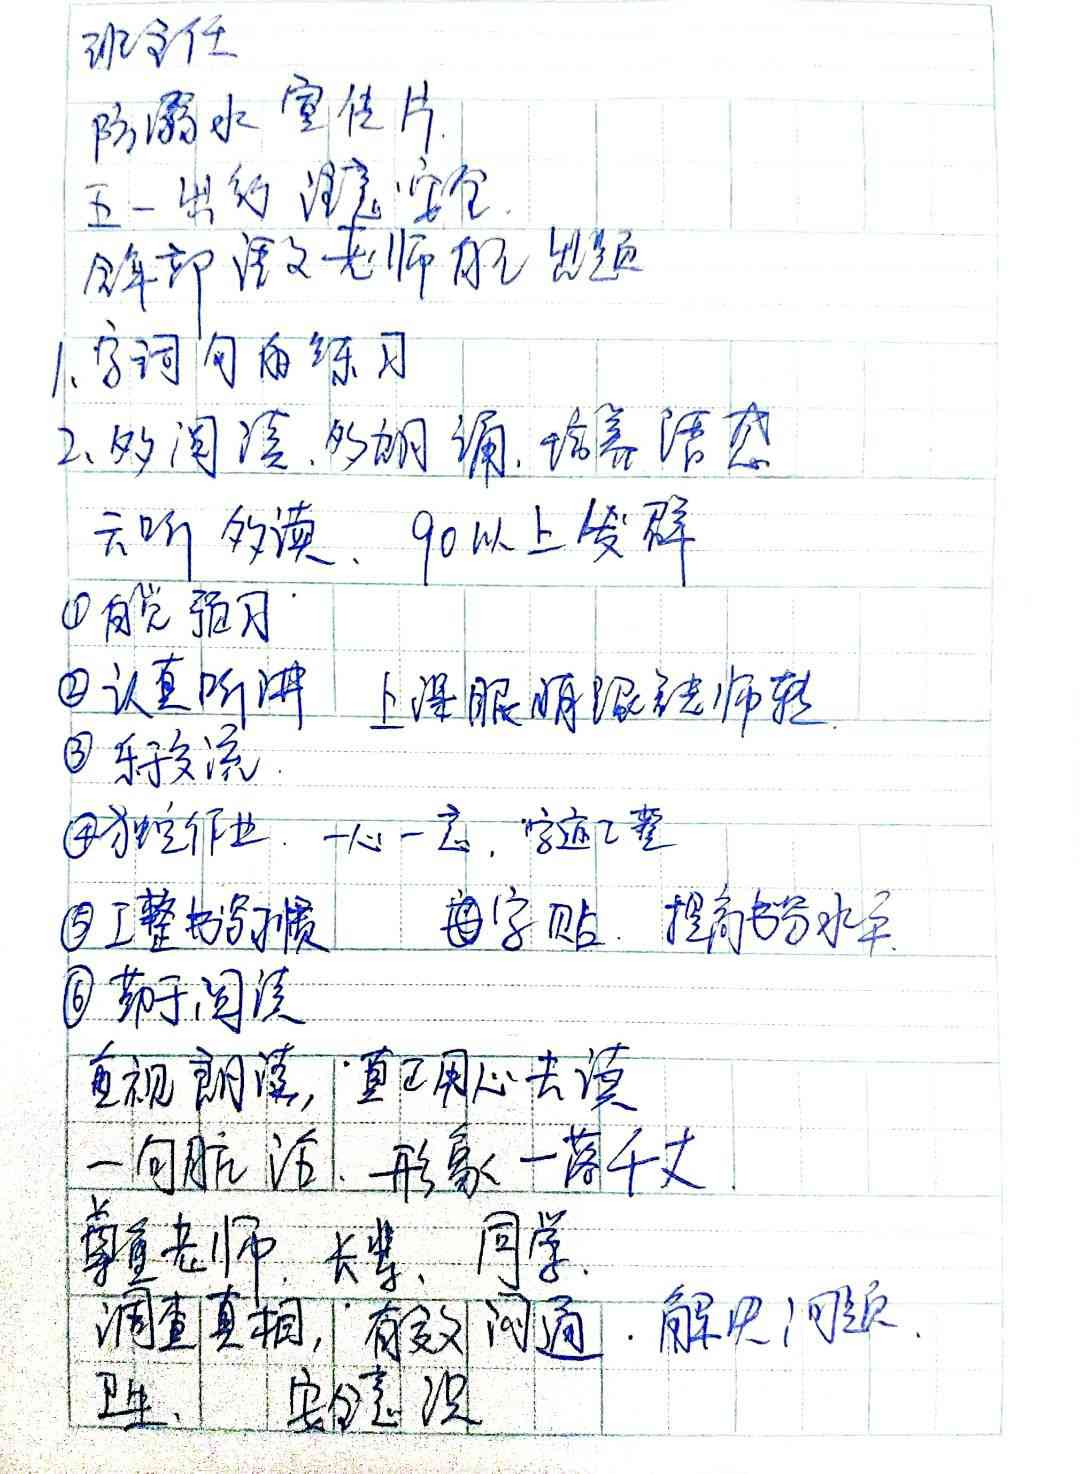 班主任
防溺水宣传片.
五一出行 注意安全.
全年部语文老师自己出题
1、字词句的练习
2、多阅读、多朗诵、培养语感
云听 多读、 90以上发群
①自觉预习
②认真听讲 上课眼睛跟着老师转.
③乐于交流.
④独立作业. 一心一意, 字迹工整
⑤工整书写习惯 字贴. 提高书写水平.
⑥勤于阅读
重视朗读, 真正用心去读
一句脏话. 形象一落千丈.
尊重老师、长辈、同学.
调查真相, 有效沟通. 解决问题.
卫生、 安全意识